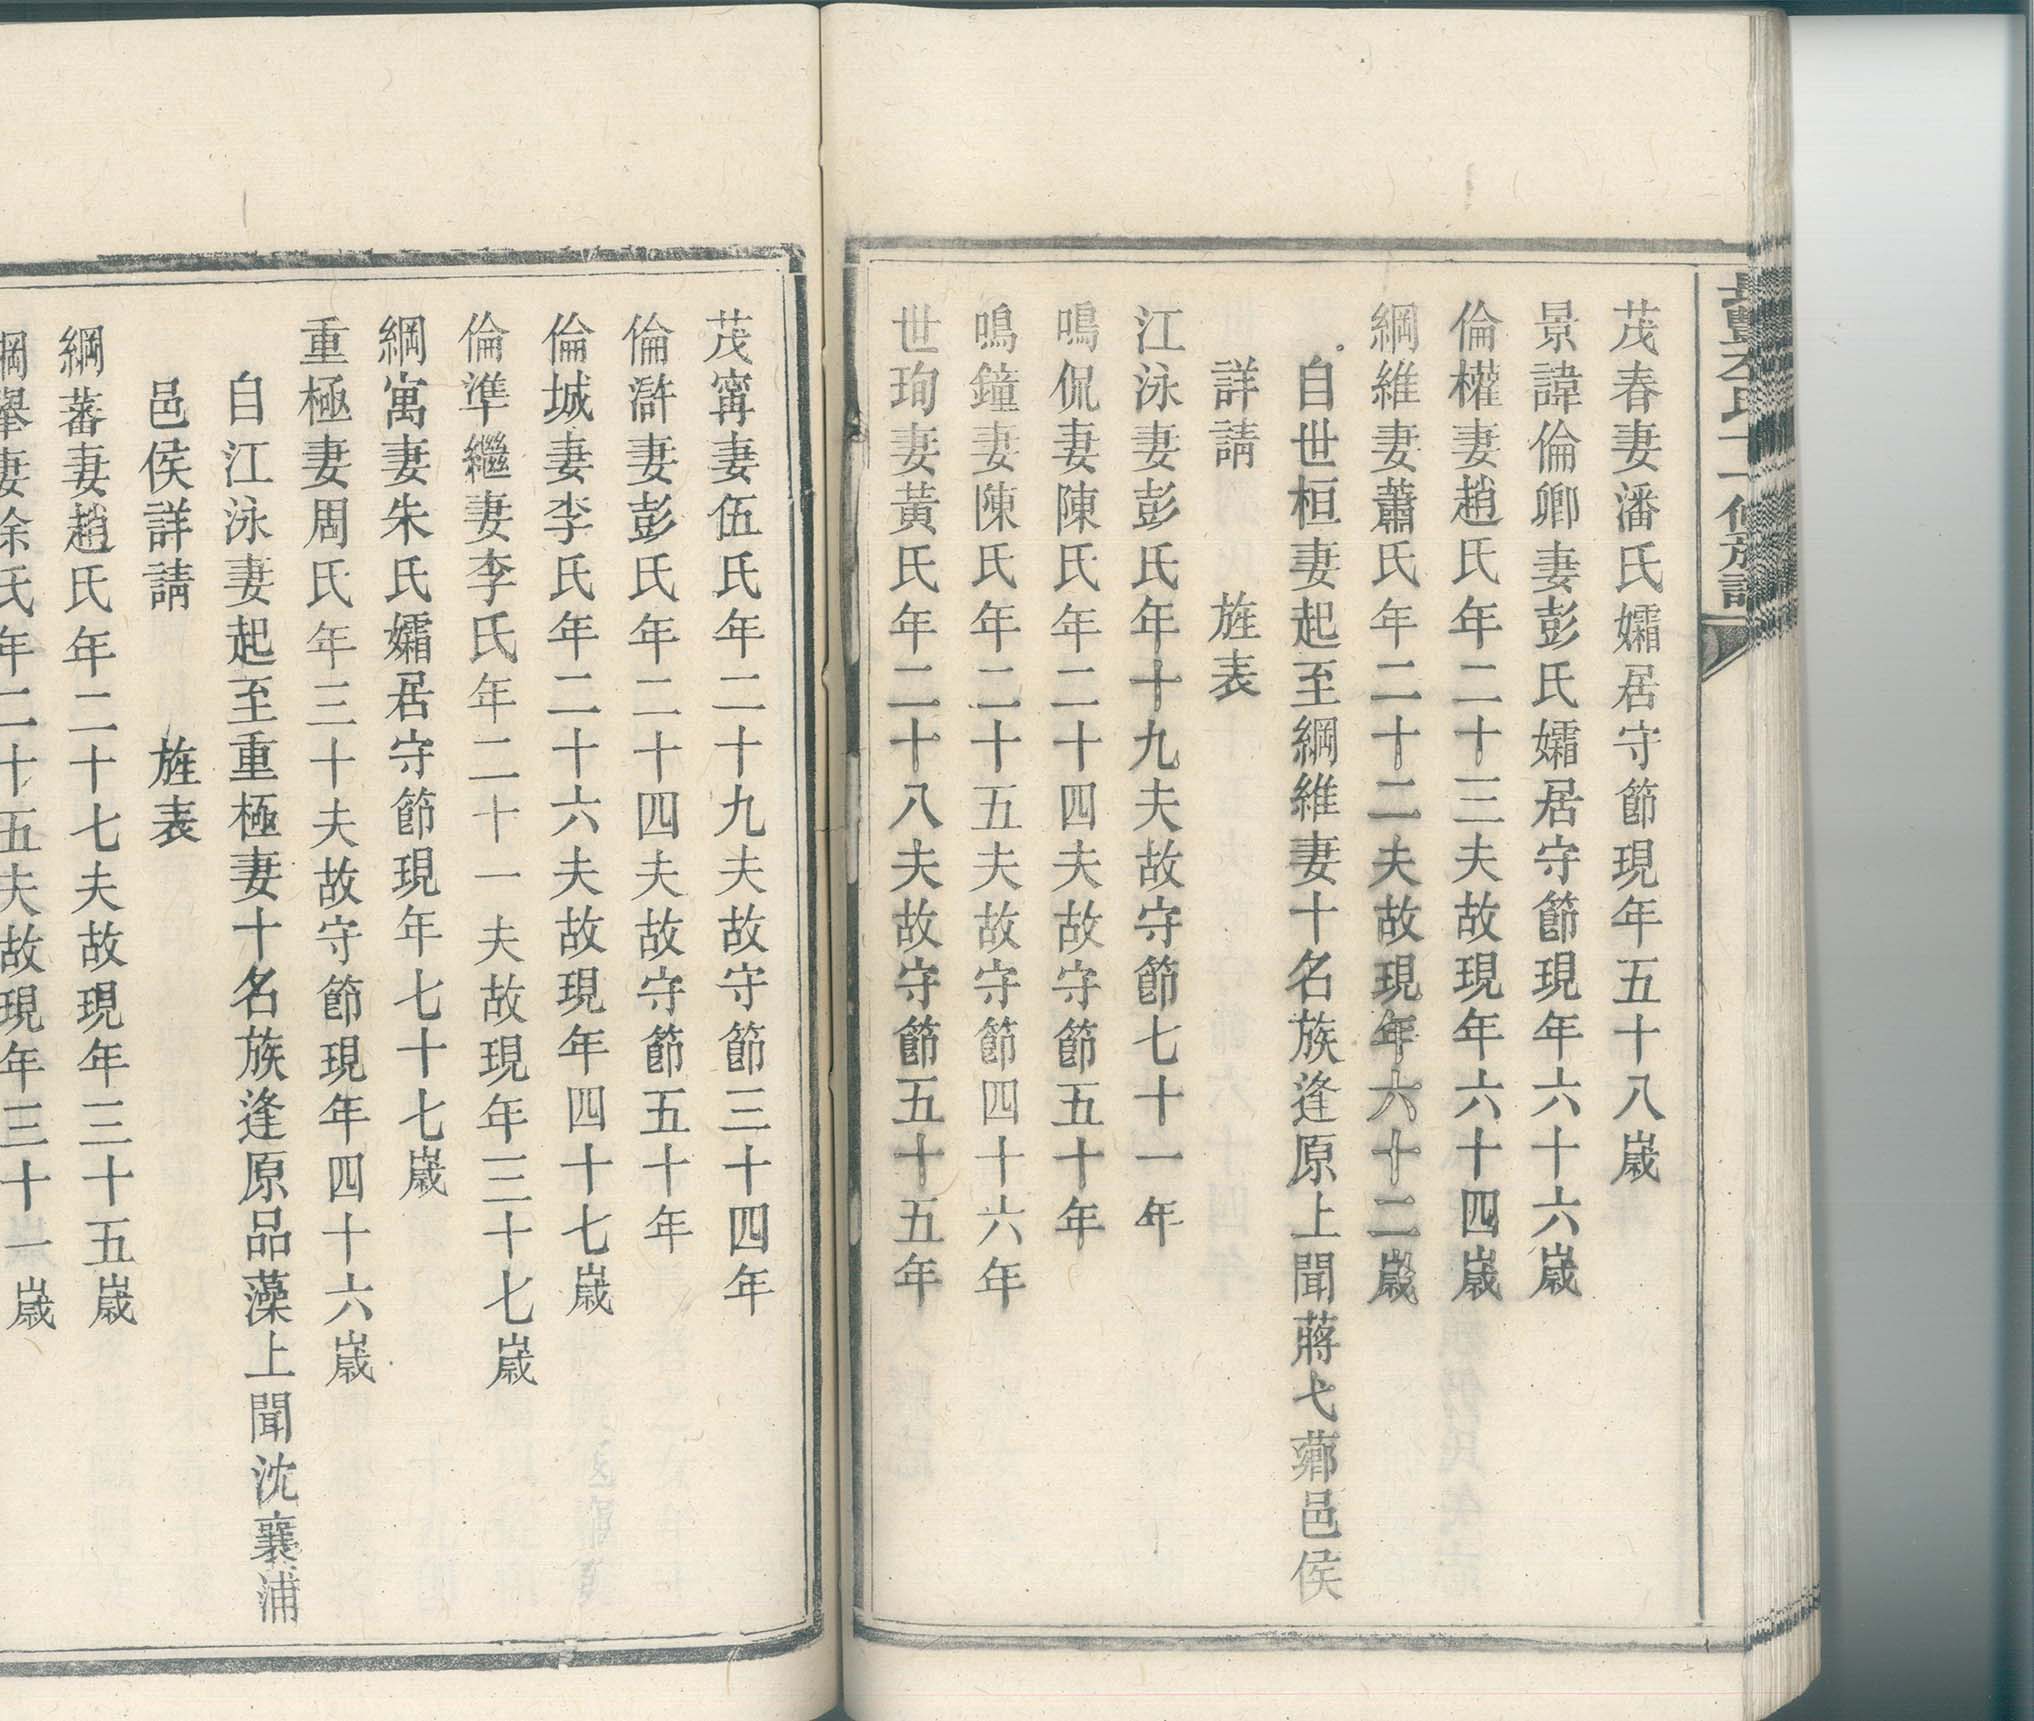 李氏十一修族譜
茂春妻潘氏孀居守節現年五十八歲
景諱倫卿妻彭氏孀居守節現年六十六歲
倫權妻趙氏年二十三夫故現年六十四歲
綱維妻蕭氏年二十二夫故現年六十二歲
自世桓妻起至綱維妻十名族逢原上聞蔣弋薌邑侯
詳請　　旌表
江泳妻彭氏年十九夫故守節七十一年
鳴侃妻陳氏年二十四夫故守節五十年
鳴鐘妻陳氏年二十五夫故守節四十六年
世珣妻黃氏年二十八夫故守節五十五年
茂甯妻伍氏年二十九夫故守節三十四年
倫滸妻彭氏年二十四夫故守節五十年
倫城妻李氏年二十六夫故現年四十七歲
倫準繼妻李氏年二十一夫故現年三十七歲
綱寓妻朱氏孀居守節現年七十七歲
重極妻周氏年三十夫故守節現年四十六歲
自江泳妻起至重極妻十名族逢原品藻上聞沈襄浦
邑侯詳請　　旌表
綱蕃妻趙氏年二十七夫故現年三十五歲
綱舉妻徐氏年二十五夫故現年三十一歲